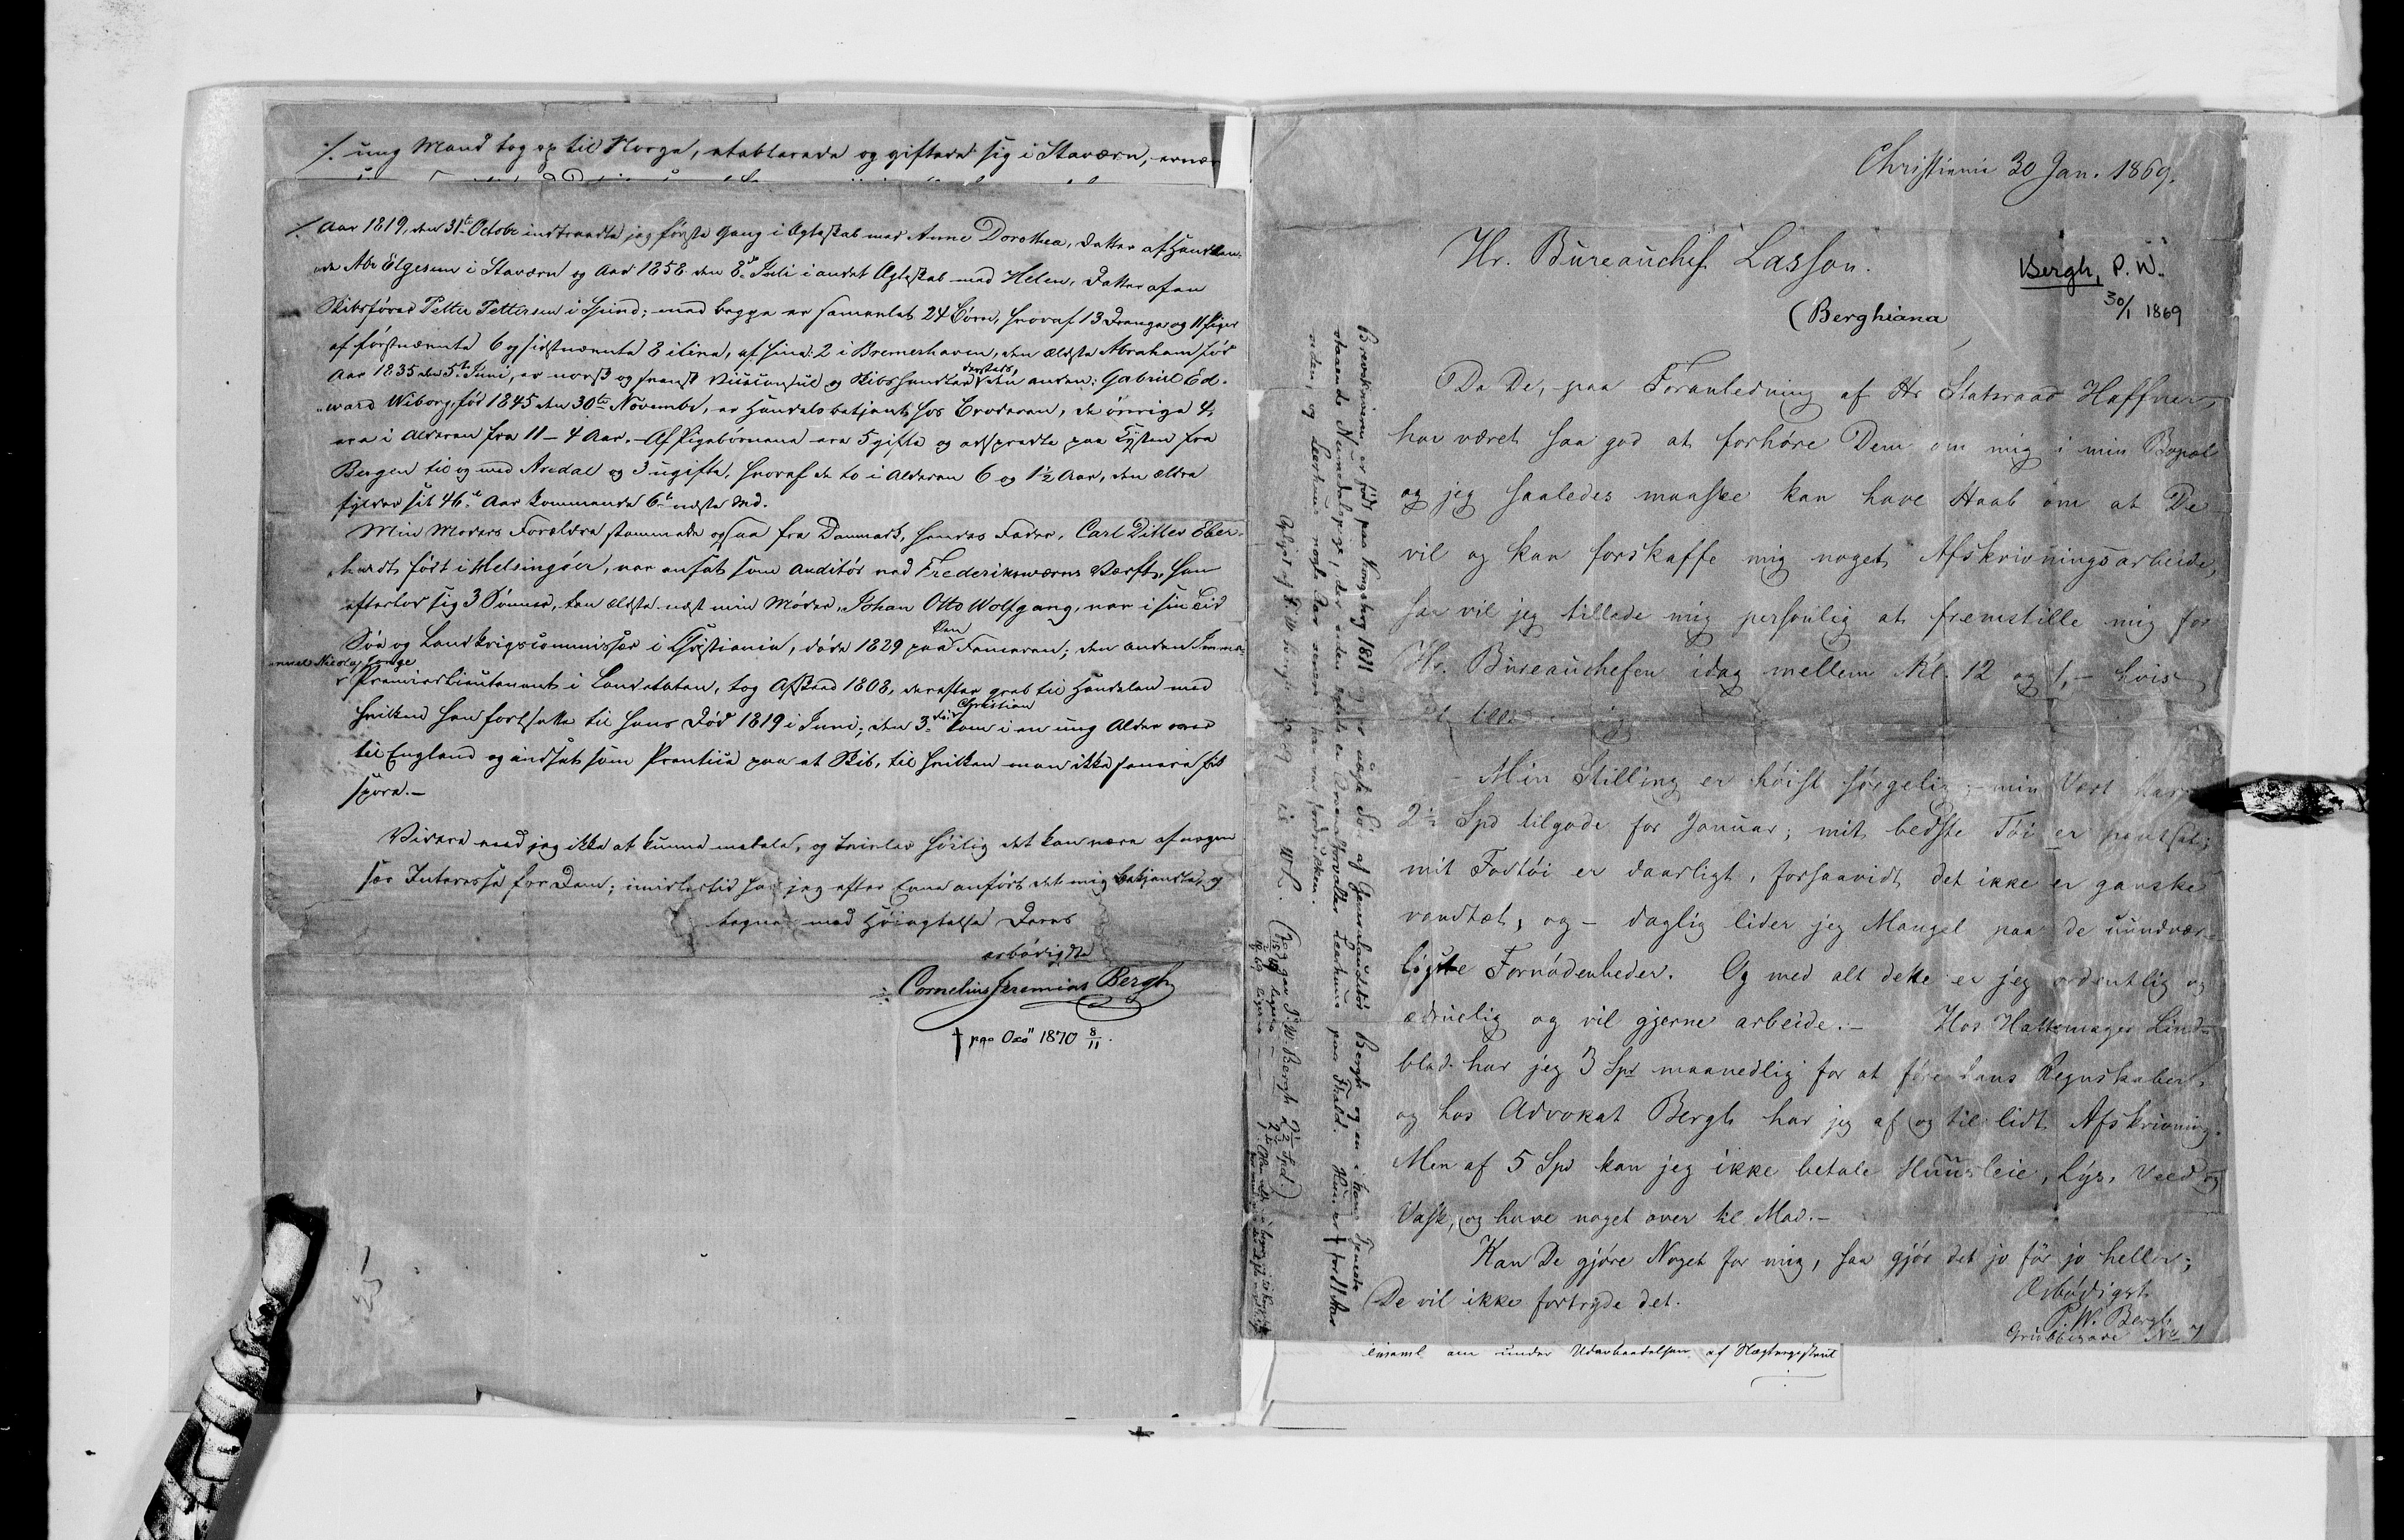 ·/. ung Mand tog op til Norge, etablerede og giftede sig i Staværn,
·/. Aar 1819, den 31te Octobr indtraadte jeg første Gang i Ægteskab med Anne Dorothea, Datter af Handlen-
de Abr Elgesem i Staværn og Aar 1858 den 8de Juli i andet Ægteskab med Helene, Datter af en
Skibsfører Petter Pettersen i Spind; med begge er samenlat 24 Børn, hvoraf 13 Drenge og 11 Piger
af førstnævnte 6 og sidstnævnte 8 ilive, af hine: 2 i Bremerhaven, den ældste Abraham fød
Aar 1835 den 5te Juni, er norsk og svensk Viceconsul og Skibshandler dersteds, den anden: Gabriel Ed-
ward Wiborg, fød 1845 den 30te Novembr, er Handelsbetjent hos Broderen, de øvrige 4,
ere i Alderen fra 11 – 4 Aar. – Af Pigebørnene ere 5 gifte og adspredte paa Kysten fra
Bergen til og med Aredal og 3 ugifte, hvoraf de to i Alderen 6 og 1½ Aar, den ældre
fylder sit 46de Aar kommende 6te næste Md.
Min Moders Forældre stammede ogsaa fra Danmark, hendes Fader, Carl Ditlev Eber-
hardt født i Helsingöer, var ansat som Auditör ved Frederiksværns Værft, han
efterlod sig 3 Sønner, den ældste næst min Moder, Johan Otto Wolfgang, var i sin Tid
Söe og Landkrigscommissær i Christiania, döde 1829 paa Reis Hjemveien; den anden Imma-
nuel Nicolay Lange
Premierlieutenant i Landetaten, tog Afsked 1808, derefter greb til Handelen med
hvilken han fortsatte til hans Død 1819 i Juni; den 3die Christian kom i en ung Alder over
til England og indsat som Prentice paa et Skib, til hvilken man ikke senere fik
spore. –
Videre veed jeg ikke at kunne meddele, og tvivler høilig det kan være af nogen
sær Interesse for Dem; imidlertid har jeg efter Evne anført det mig bekjendte, og
tegner med Høiagtelse Deres
ærbødigste
Cornelius Jeremias Bergh
† paa Oxö 1870 8/11.
Christiania 30 Jan. 1869.
Hr. Bureauchef Lasson.
Bergh, P. W.
30/1 1869
(Berghiana
Da De, paa Foranledning af Hr Statsraad Haffner,
har været saa god at forhøre Dem om mig i min Bopæl
og jeg saaledes maaske kan have Haab om at De
vil og kan forskaffe mig noget Afskrivningsarbeide,
saa vil jeg tillade mig personlig at fremstille mig for
Hr. Bureauchefen idag mellem Kl. 12 og 1, – hvis
– Min Stilling er høist sørgelig; – min Vært har
2½ Spd tilgode for Januar; mit bedste Tøi er pantsat;
mit Fodtøi er daarligt, forsaavidt det ikke er ganske
vandtæt, og – daglig lider jeg Mangel paa de uundvær-
ligste Fornødenheder. Og med alt dette er jeg ordentlig og
ædruelig og vil gjerne arbeide. – Hos Hattemager Lind-
blad har jeg 3 Spd maanedlig for at føre hans Regnskaber,
og hos Advokat Bergh har jeg af og til lidt Afskrivning.
Men af 5 Spd kan jeg ikke betale Huusleie, Lys, Veed og
Vask, og have noget over til Mad. –
Kan De gjøre Noget for mig, saa gjør det jo før jo heller;
De vil ikke fortryde det.
Ærbødigst
P. W. Bergh
Grubbegade No 7
Brevskriveren er född paa Kongsberg 1811 og er næste Søn af Generalauditör Bergh og en i hans Tjeneste
staaende Numedalspige, der siden ægtede en Arrestforvalter Leerhuus paa Frhald. Hun er † for 11 Aar
siden, og Leerhuus nogle Aar senere har var fordrukken.
(Jeg gav P. W. Bergh 2½ Spd.)
under Udarbeidelsen af Slægtregistret